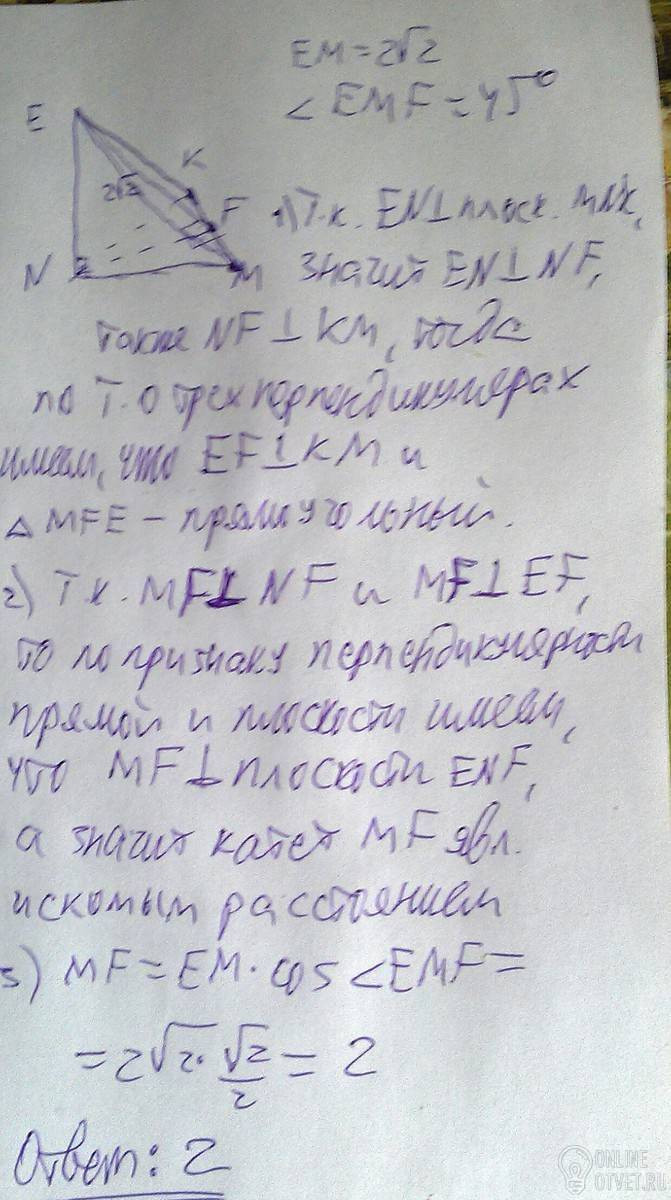 EM = 2√2
∠ EMF = 45°
E
K
2√2
F
N
M
1) Т.к. EN⊥плоск. MNK,
значит EN⊥NF,
также NF⊥KM, тогда
по Т. о трех перпендикулярах
имеем, что EF⊥KM и
△ MFE – прямоугольный.
2) Т.к. MF⊥NF и MF⊥EF,
то по признаку перпендикулярности
прямой и плоскости имеем,
что MF⊥плоскости ENF,
а значит катет MF явл.
искомым расстоянием
3) MF = EM · cos ∠EMF =
= 2√2 · √2/2 = 2
Ответ: 2
ONLINE
OTVET.RU